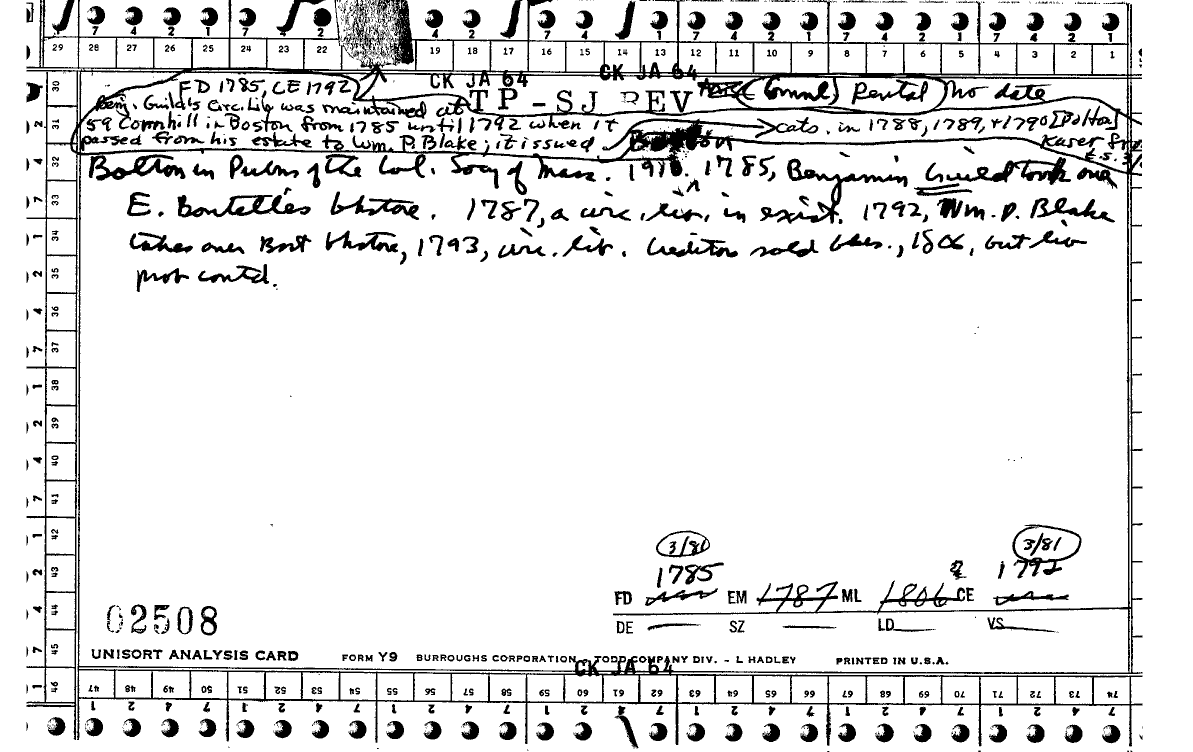 7 4 2 1 7 4 2 4 2 1 7 4 2 1 7 4 2 1 7 4 2 1 7 4 2 1
29 28 27 26 25 24 23 22 19 18 17 16 15 14 13 12 11 10 9 8 7 6 5 4 3 2 1
CK JA 64 CK JA 64
FD 1785, CE 1792 TP - SJ REV (Comml) Rental No date
Benj. Guild's Circ. Lib. was maintained at
59 Cornhill in Boston from 1785 until 1792 when it cats. in 1788, 1789, + 1790 [Bolton]
passed from his estate to Wm. P. Blake; it issued Boston Kaser
Bolton in Pubns of the Col. Socy of Mass. 1910. 1785, Benjamin Guild took over
E. Boutelle's bkstore. 1787, a circ. lib. in exist. 1792, Wm. P. Blake
takes over Bost bkstore, 1793, circ. lib. Creditors sold bks., 1806, but lib
prob contd.
30
31
32
33
34
35
36
37
38
39
40
41
42
43
44
45
46
3/81 3/81
1785 ? 1792
FD EM 1787 ML 1806 CE
DE SZ LD VS
02508
UNISORT ANALYSIS CARD FORM Y9 BURROUGHS CORPORATION - TODD COMPANY DIV. - L HADLEY PRINTED IN U.S.A.
CK JA 64
47 48 49 50 51 52 53 54 55 56 57 58 59 60 61 62 63 64 65 66 67 68 69 70 71 72 73 74
1 2 4 7 1 2 4 7 1 2 4 7 1 2 4 7 1 2 4 7 1 2 4 7 1 2 4 7